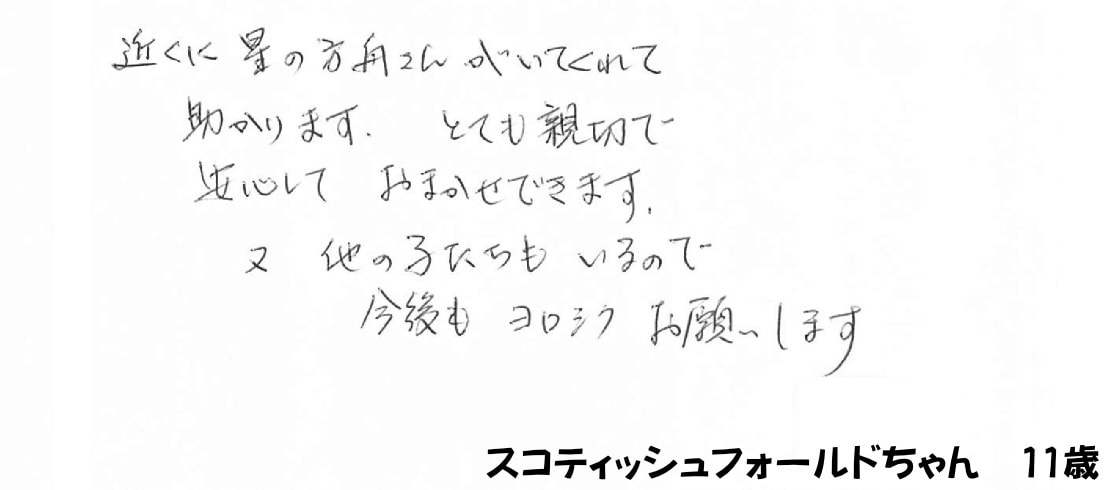 近くに 星の方舟さんがいてくれて
助かります. とても親切で
安心して おまかせできます.
又 他の子たちも いるので
今後も ヨロシク お願いします
スコティッシュフォールドちゃん 11歳